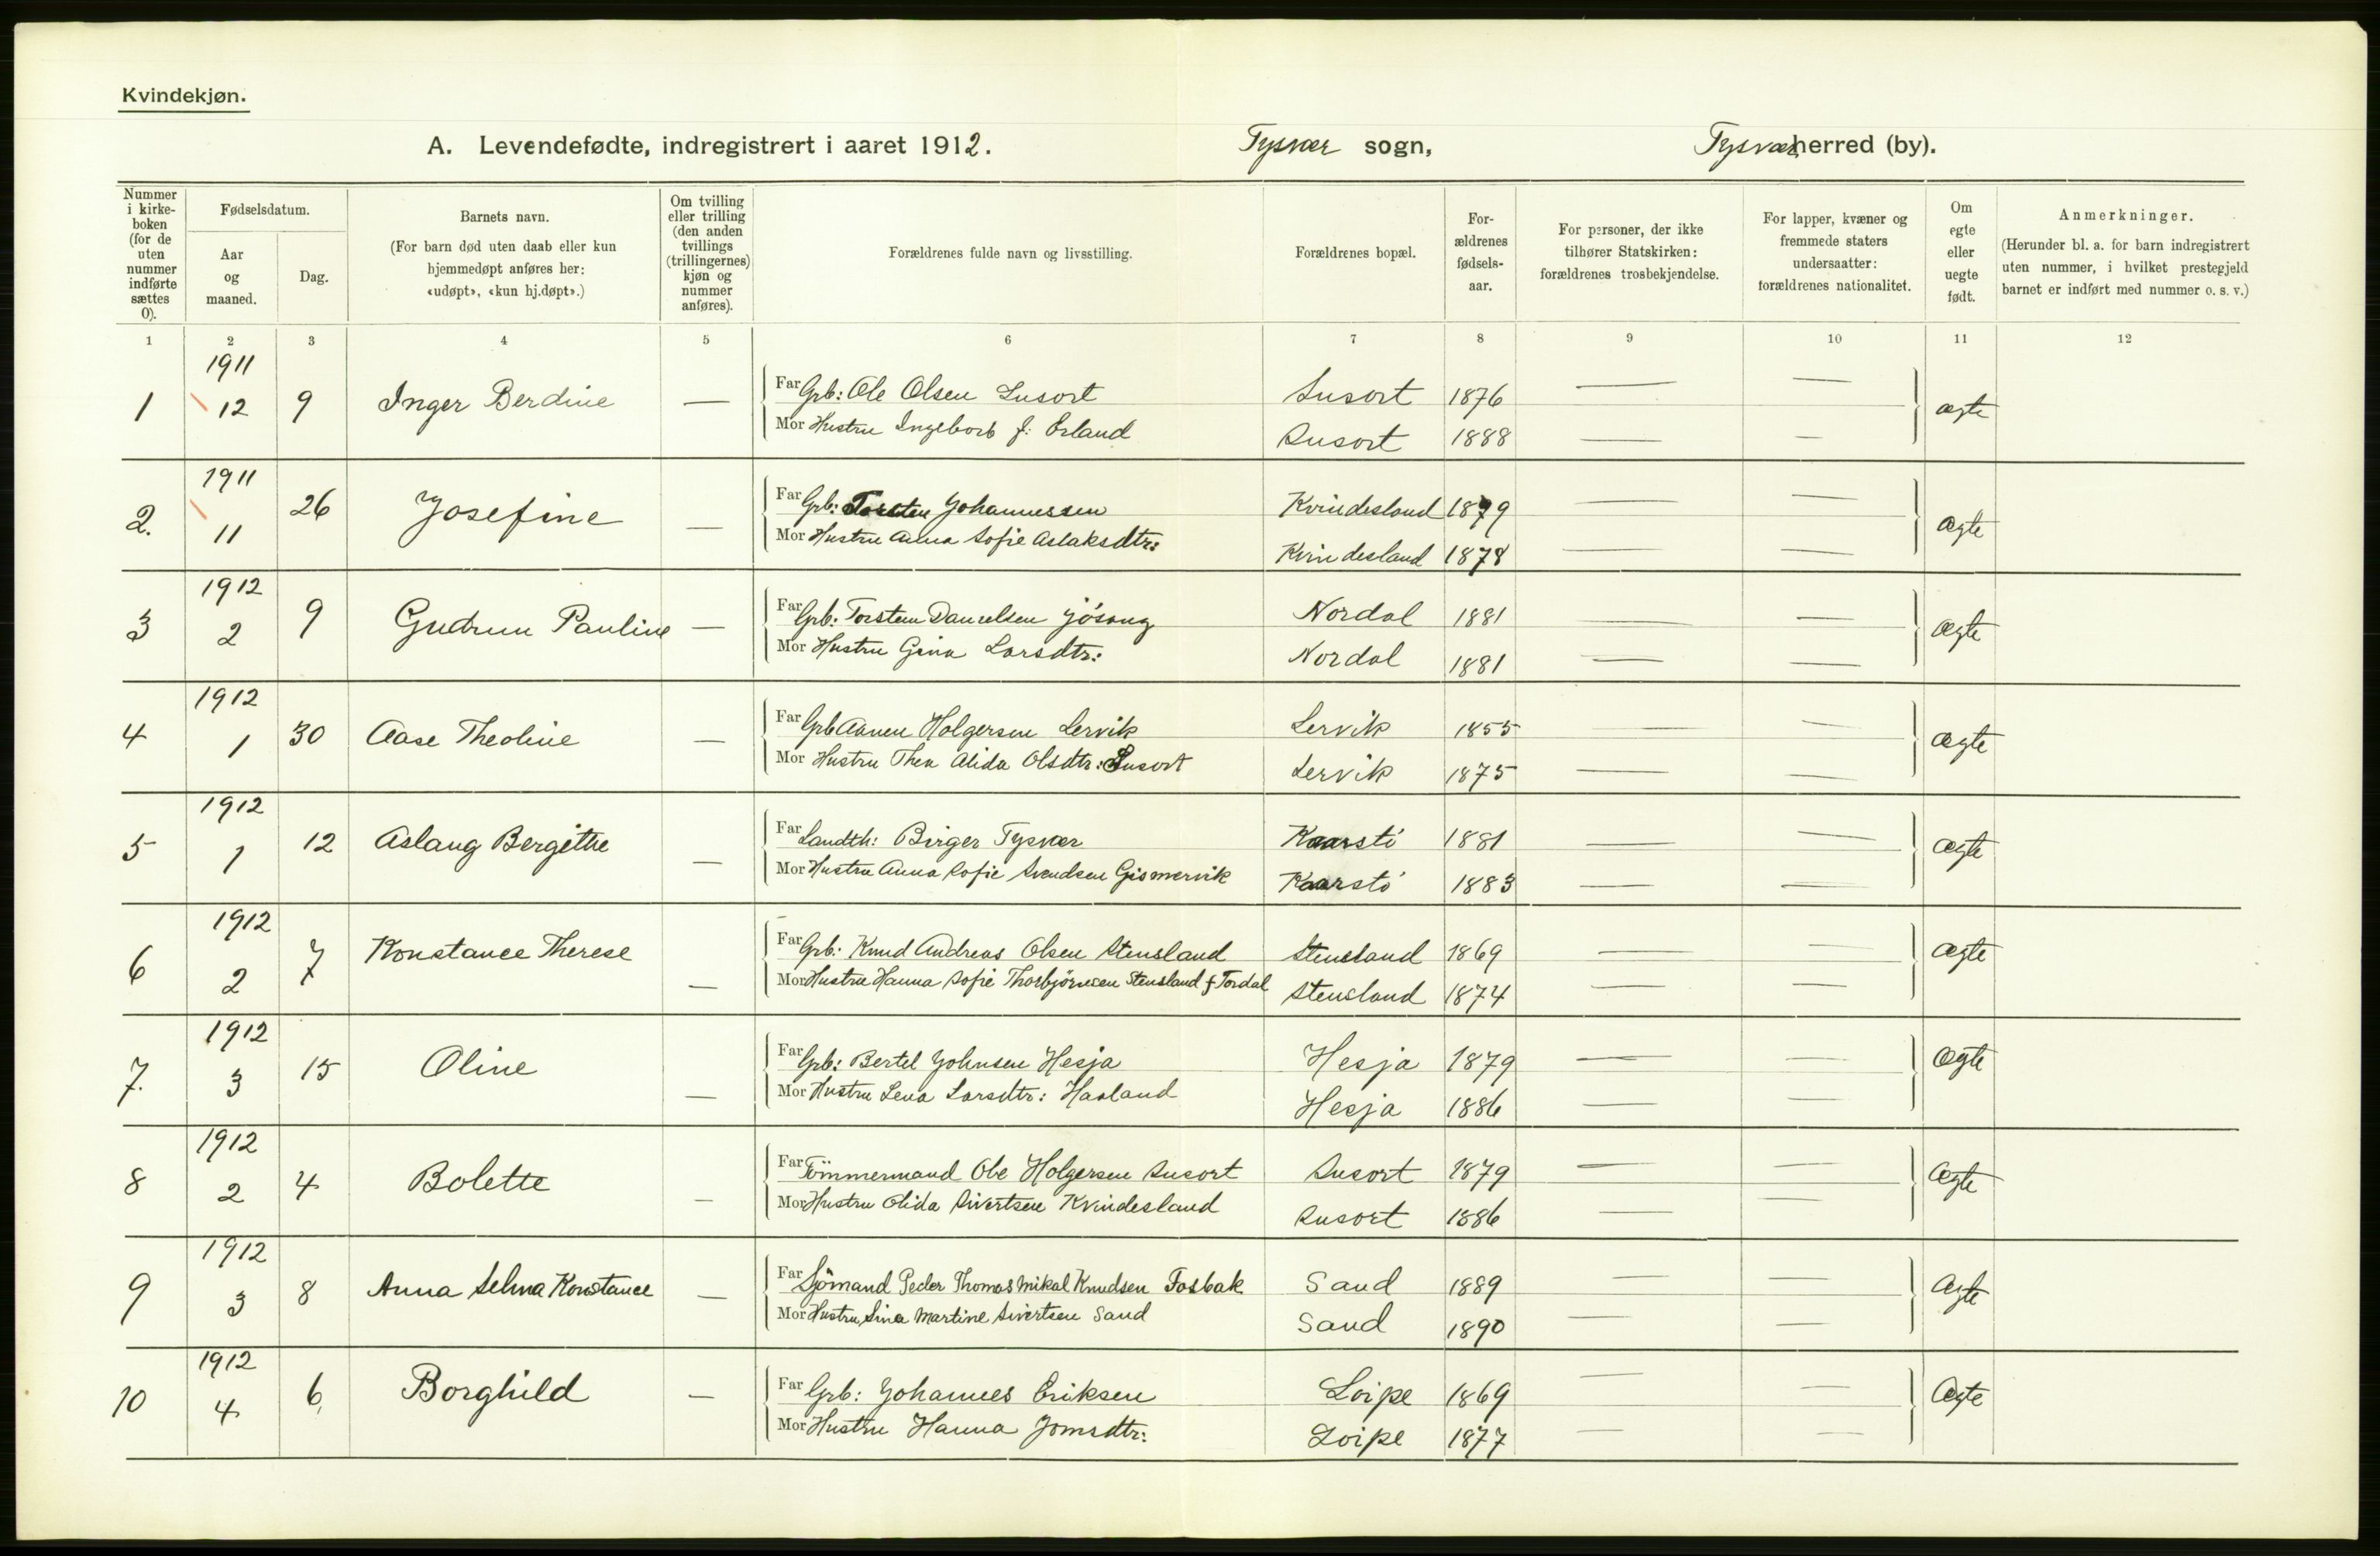 Kvindekjøn.
A. Levendefødte, indregistrert i aaret 1912. Tysvær sogn, Tysvær herred (by).
Nummer i kirke-boken (for de uten nummer indførte sættes 0).
Fødselsdatum.
Aar og maaned.
Dag.
Barnets navn.
(For barn død uten daab eller kun hjemmedøpt anføres her: «udøpt», «kun hj.døpt».)
Om tvilling eller trilling (den anden tvillings (trillingernes) kjøn og nummer anføres).
Forældrenes fulde navn og livsstilling.
Forældrenes bopæl.
For-ældrenes fødsels-aar.
For personer, der ikke tilhører Statskirken: forældrenes trosbekjendelse.
For lapper, kvæner og fremmede staters undersaatter: forældrenes nationalitet.
Om egte eller uegte født.
Anmerkninger.
(Herunder bl. a. for barn indregistrert uten nummer, i hvilket prestegjeld barnet er indført med nummer o. s. v.)
1 2 3 4 5 6 7 8 9 10 11 12
1911
1 12 9 Inger Berdine — Far Grb: Ole Olsen Susort Susort 1876 — — ægte
Mor Hustru Ingeborb f: Erland Susort 1888 — —
1911
2. 11 26 Josefine — Far Grb: Torsten Johannessen Kvindesland 1879 — — ægte
Mor Hustru Anna Sofie Aslaksdtr: Kvindesland 1878 — —
1912
3 2 9 Gudrun Pauline — Far Grb: Torstein Danielsen Jösang Nordal 1881 — — ægte
Mor Hustru Gina Larsdtr: Nordal 1881 — —
1912
4 1 30 Aase Theoline — Far Grb Aanen Holgersen Lervik Lervik 1855 — — ægte
Mor Hustru Thea Alida Olsdtr: Susort Lervik 1875 — —
1912
5 1 12 Aslaug Bergithe — Far Landth: Birger Tysvær Kaarstö 1881 — — ægte
Mor Hustru Anna Sofie Svendsen Gismervik Kaarstö 1883 — —
1912
6 2 7 Konstance Therese — Far Grb: Knud Andreas Olsen Stensland Stensland 1869 — — ægte
Mor Hustru Hanna Sofie Thorbjörnsen Stensland f Tordal Stensland 1874 — —
1912
7. 3 15 Oline — Far Grb: Bertel Johnsen Hesja Hesja 1879 — — ægte
Mor Hustru Lena Larsdtr: Haaland Hesja 1886 — —
1912
8 2 4 Bolette — Far Tömmermand Ole Holgersen Susort Susort 1879 — — ægte
Mor Hustru Olida Sivertsen Kvindesland Susort 1886 — —
1912
9 3 8 Anna Selma Konstance — Far Sjömand Peder Thomas Mikal Knudsen Fosbak Sand 1889 — — ægte
Mor Hustru Sina Martine Sivertsen Sand Sand 1890 — —
1912
10 4 6 Borghild — Far Grb: Johannes Eriksen Loipe 1869 — — ægte
Mor Hustru Hanna Jonsdtr: Loipe 1877 — —